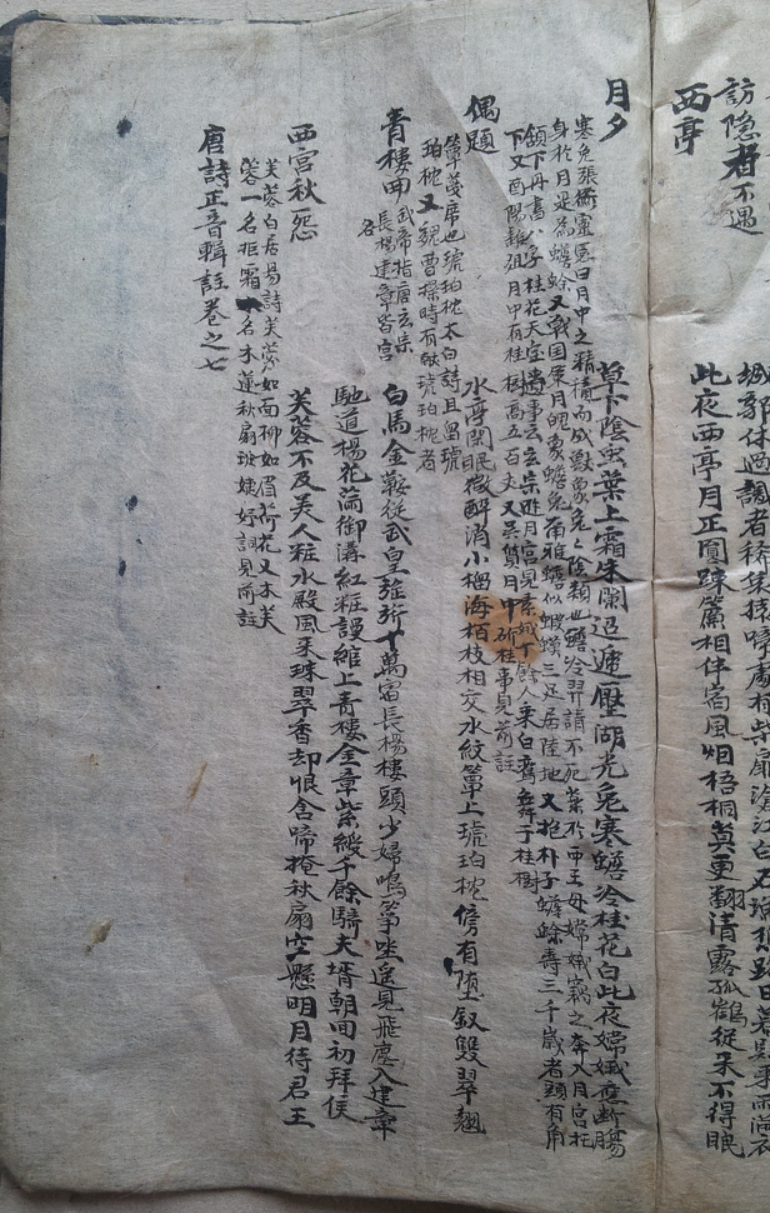 訪隐者不遇
城郭休過識者稀哀猿啼處有柴扉滄江白石
西亭
此夜西亭月正圓踈簾相伴宿風烟梧桐莫更翻清露孤鶴從来不得眠
月夕
草下陰虫葉上霜朱闌迢遞壓湖光兔寒蟾冷桂花白此夜嫦娥應断腸
寒兔張衡靈憲曰月中之精積而成獸象兔兔陰類也蟾冷羿請不死藥於西王母嫦娥竊之奔入月宮托
身於月是為蟾蜍又戰国策月魄象蟾兔爾雅蟾似蝦蟆三足居陸地又抱朴子蟾蜍壽三千歲者頭有角
頷下丹書八字桂花天宝遺事云玄宗遊月宮見素娥十餘人乗白鸞舞于桂樹
下又酉陽雜俎月中有桂樹高五百丈又吴質月中斫桂事見前註
偶題
水亭閑眠微醉消小榴海栢枝相交水紋簟上琥珀枕傍有堕釵雙翠翹
簟蔓席也琥珀枕太白詩且留琥
珀枕又魏曹操時有献琥珀枕者
青樓曲
武帝指唐玄宗
長楊建章皆宮
名
白馬金鞍從武皇旌旂十萬宿長楊樓頭少婦鳴箏坐遥見飛塵入建章
馳道楊花滿御溝紅粧謾綰上青樓金章紫綬千餘騎夫壻朝回初拜侯
西宮秋怨
芙蓉不及美人粧水殿風来珠翠香却恨含啼掩秋扇空懸明月待君王
芙蓉白居易詩芙蓉如面柳如眉荷花又木芙
蓉一名拒霜一名木蓮秋扇班婕妤詞見前註
唐詩正音輯註卷之七